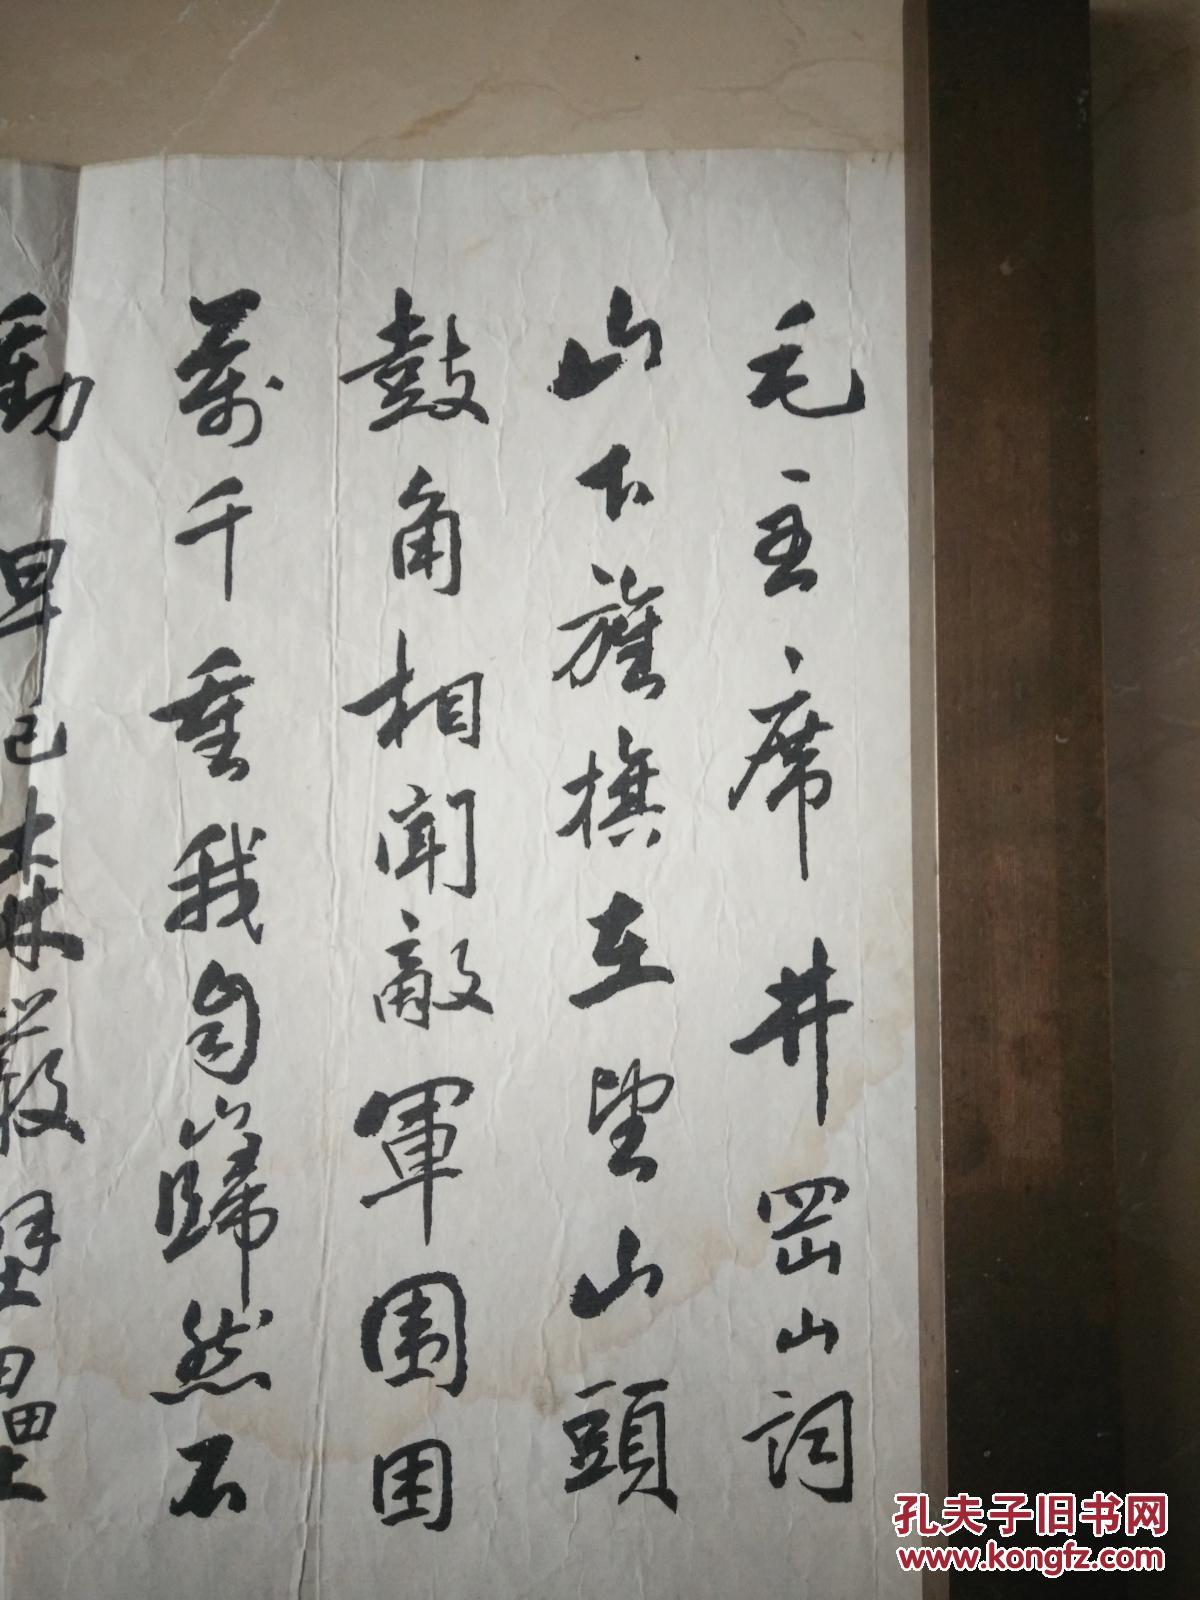 毛主席井罡山詞
山下旌旗在望山頭
鼓角相聞敵軍围困
萬千重我自巋然不
動早已森嚴壁壘
孔夫子旧书网
www.kongfz.com